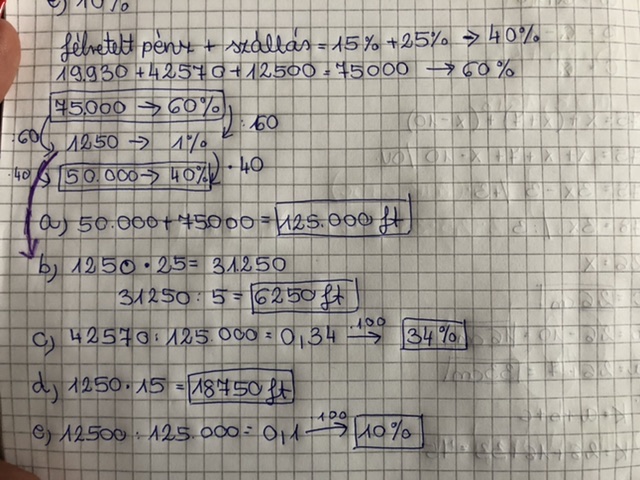 e) 10%
félretett pénz + szállás = 15% + 25% → 40%
19930 + 42570 + 12500 = 75000 → 60%
75.000 → 60%
:60 :60
1250 → 1%
.40 50.000 → 40% · 40
a) 50.000 + 75000 = 125.000 ft
b) 1250 · 25 = 31250
31250 : 5 = 6250 ft
c) 42570 : 125.000 = 0,34 .100 → 34%
d) 1250 · 15 = 18750 ft
e) 12500 : 125.000 = 0,1 100 → 10%